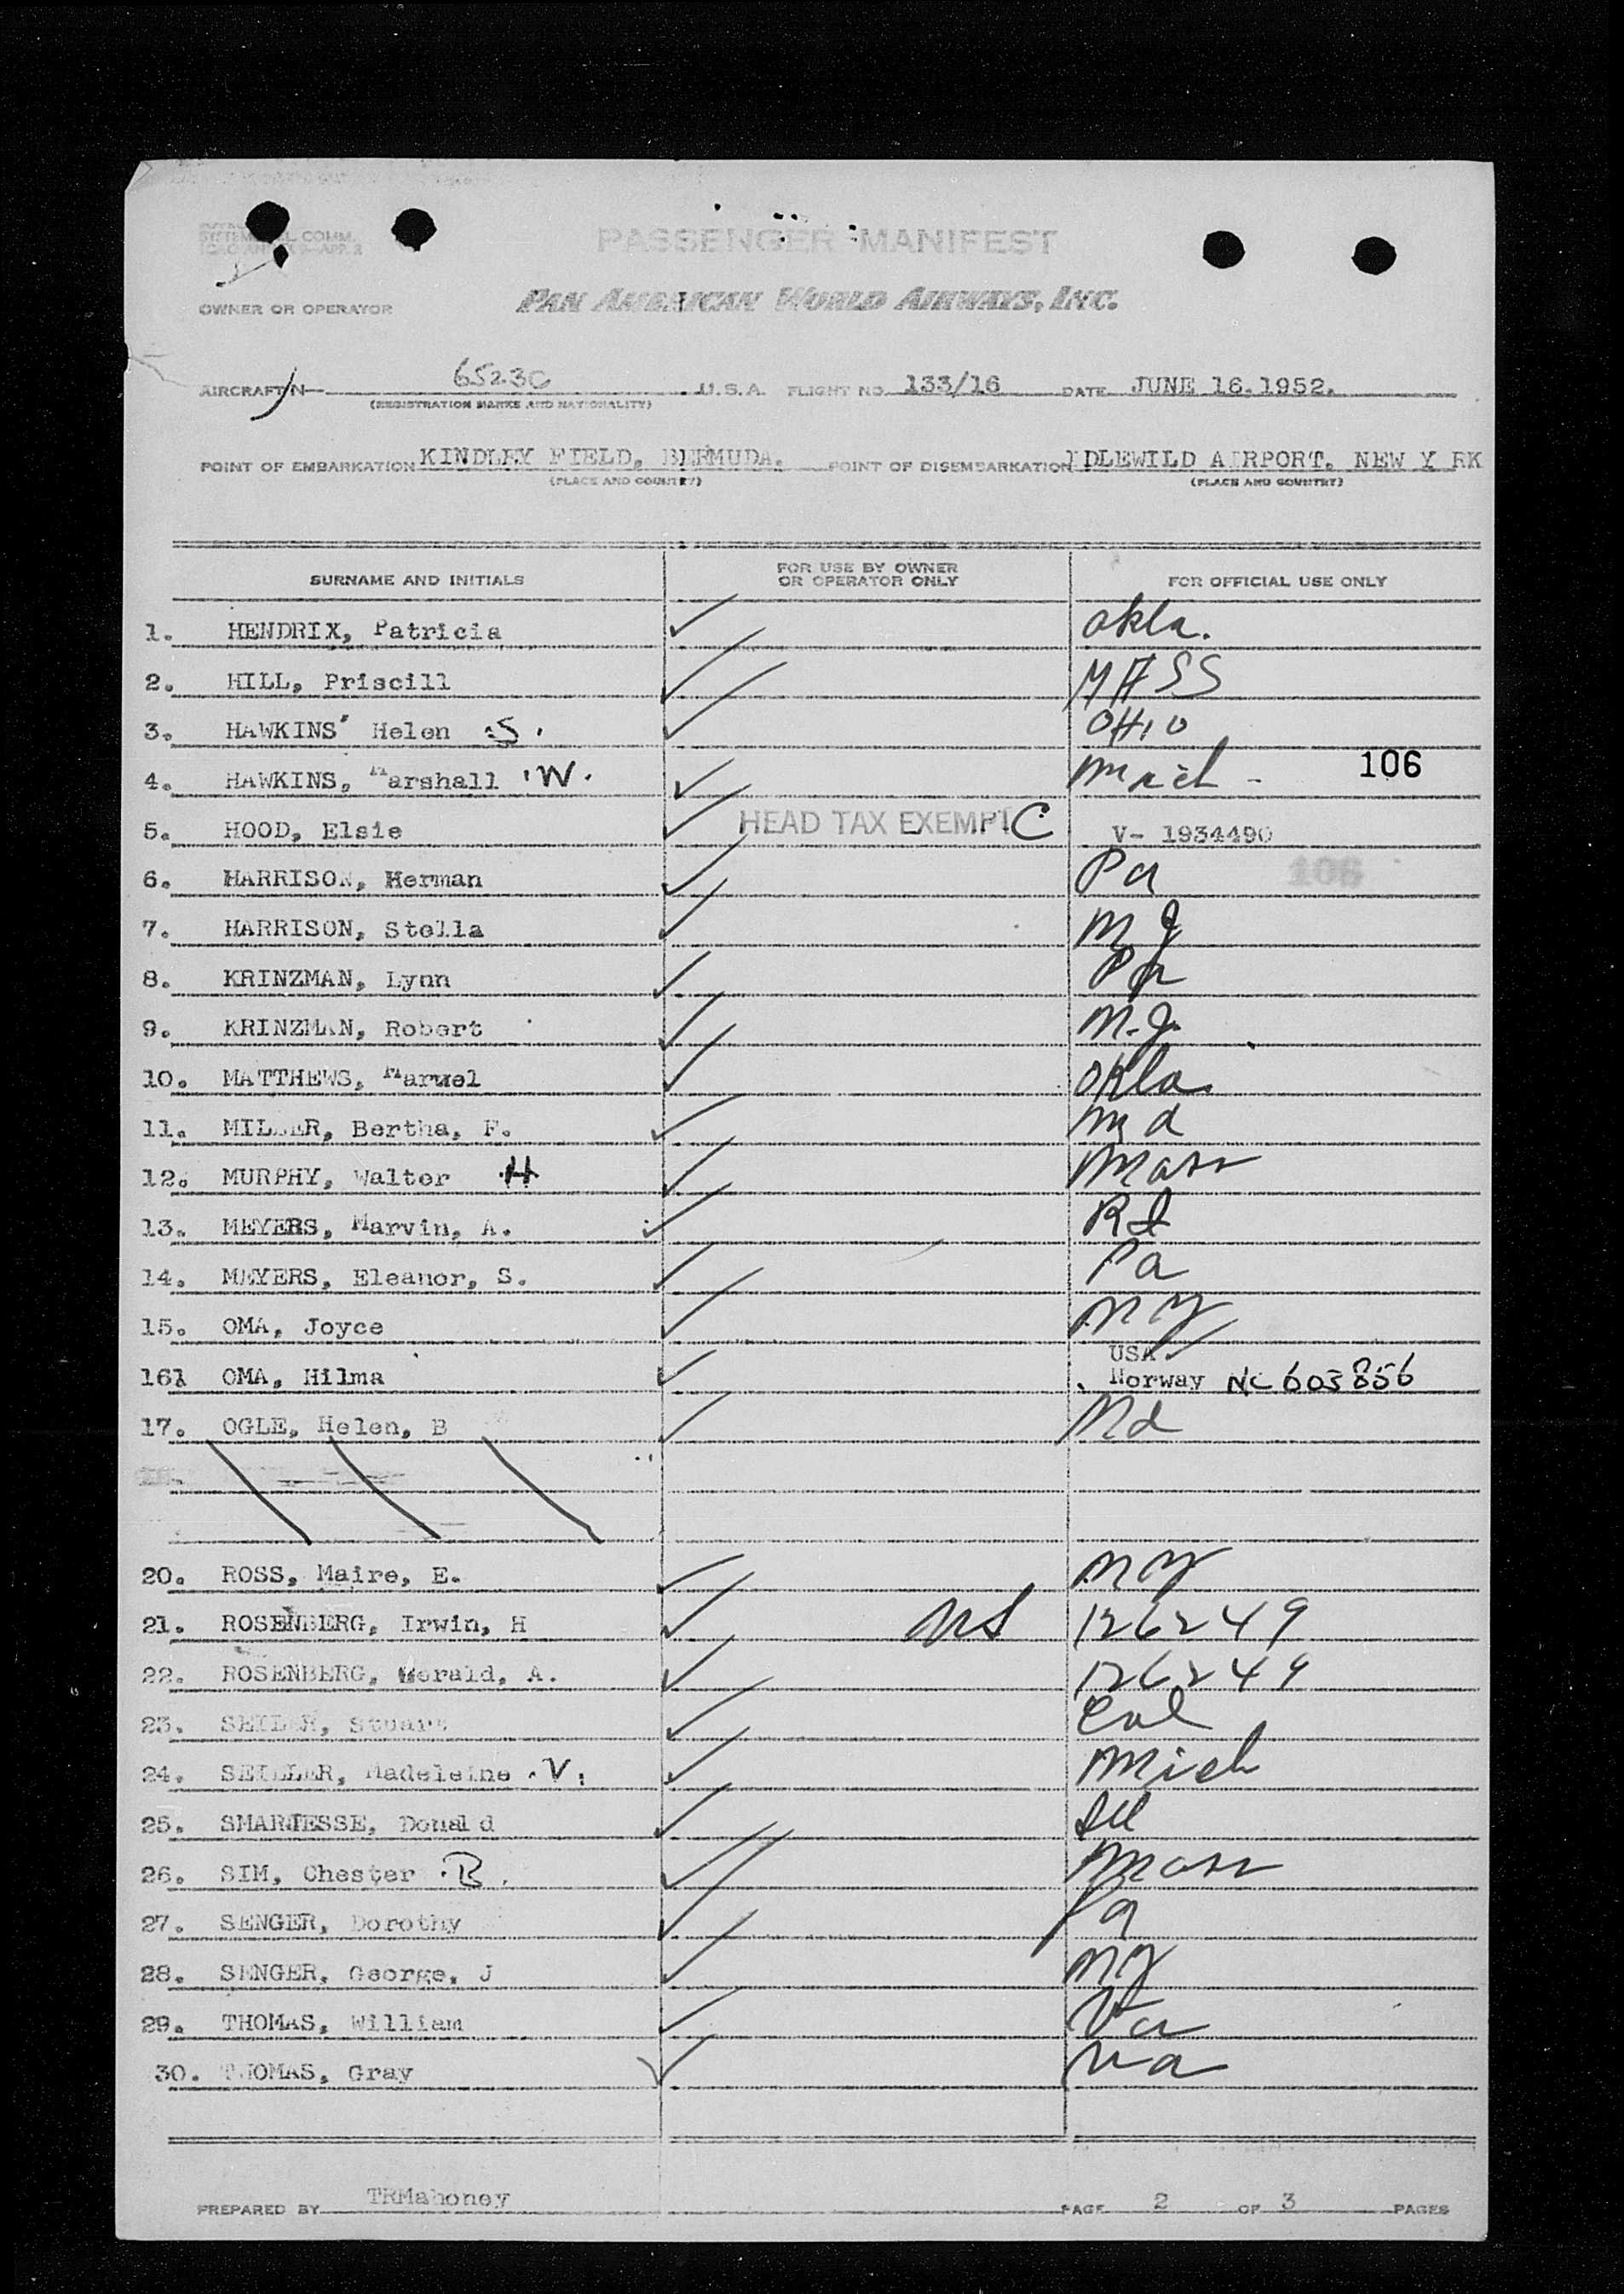 PASSENGER MANIFEST
OWNER OR OPERATOR PAN AMERICAN WORLD AIRWAYS, INC.
AIRCRAFT N- 6523C U.S.A. FLIGHT NO. 133/16 DATE JUNE 16.1952.
(REGISTRATION MARKS AND NATIONALITY)
POINT OF EMBARKATION KINDLEY FIELD, BERMUDA. POINT OF DISEMBARKATION IDLEWILD AIRPORT. NEW Y RK
(PLACE AND COUNTRY) (PLACE AND COUNTRY)
SURNAME AND INITIALS FOR USE BY OWNER OR OPERATOR ONLY FOR OFFICIAL USE ONLY
1. HENDRIX, Patricia ✓ Okla.
2. HILL, Priscill ✓ MASS
3. HAWKINS' Helen S. ✓ OHIO
4. HAWKINS, Marshall W. ✓ Mich - 106
5. HOOD, Elsie ✓ HEAD TAX EXEMPT C V- 1934490
6. HARRISON, Herman ✓ Pa 106
7. HARRISON, Stella ✓ N J
8. KRINZMAN, Lynn ✓ Pa
9. KRINZMAN, Robert ✓ N.J.
10. MATTHEWS, Maruel ✓ Okla.
11. MILLER, Bertha, F. ✓ Md
12. MURPHY, Walter H ✓ Mass
13. MEYERS, Marvin, A. ✓ RI
14. MEYERS, Eleanor, S. ✓ Pa
15. OMA, Joyce ✓ NY
USA
161 OMA, Hilma ✓ Norway NC 603856
17. OGLE, Helen, B ✓ Md
20. ROSS, Maire, E. ✓ NY
21. ROSENBERG, Irwin, H ✓ NS 126249
22. ROSENBERG, Gerald, A. ✓ 126249
23. SEILER, Stuart ✓ Cal
24. SEILLER, Madeleine V. ✓ Mich
25. SMARTESSE, Donald ✓ Ill
26. SIM, Chester B. ✓ Mass
27. SENGER, Dorothy ✓ Pa
28. SENGER, George, J ✓ NJ
29. THOMAS, William ✓ Va
30. THOMAS, Gray ✓ Va
PREPARED BY TRMahoney PAGE 2 OF 3 PAGES